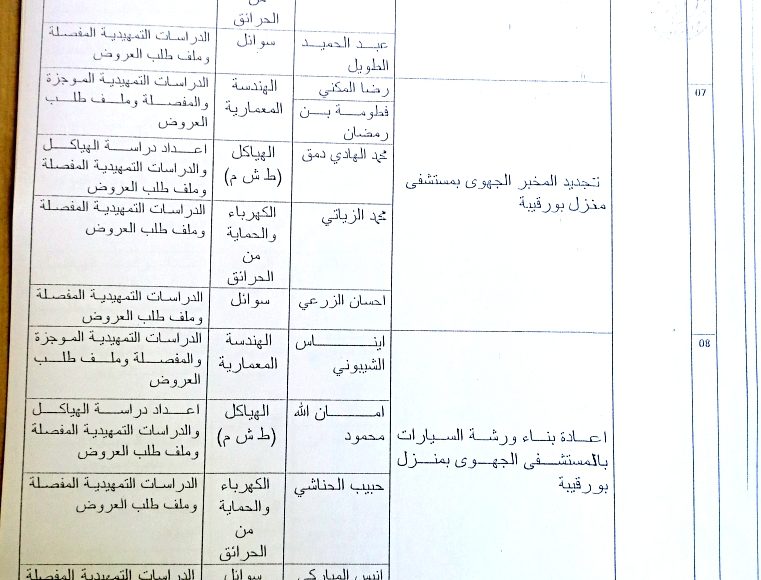 الحرائق
عبد الحميد
الطويل
سوائل
الدراسات التمهيدية المفصلة
وملف طلب العروض
07
تجديد المخبر الجهوي بمستشفى
منزل بورقيبة
رضا المكني
فطومة بن
رمضان
الهندسة
المعمارية
الدراسات التمهيدية الموجزة
والمفصلة وملف طلب
العروض
محمد الهادي دمق
الهياكل
(ط ش م)
اعداد دراسة الهياكل
والدراسات التمهيدية المفصلة
وملف طلب العروض
محمد الزياتي
الكهرباء
والحماية
من
الحرائق
الدراسات التمهيدية المفصلة
وملف طلب العروض
احسان الزرعي
سوائل
الدراسات التمهيدية المفصلة
وملف طلب العروض
08
اعادة بناء ورشة السيارات
بالمستشفى الجهوي بمنزل
بورقيبة
ايناس
الشيبوني
الهندسة
المعمارية
الدراسات التمهيدية الموجزة
والمفصلة وملف طلب
العروض
امان الله
محمود
الهياكل
(ط ش م)
اعداد دراسة الهياكل
والدراسات التمهيدية المفصلة
وملف طلب العروض
حبيب الحناشي
الكهرباء
والحماية
من
الحرائق
الدراسات التمهيدية المفصلة
وملف طلب العروض
انيس المباركي
سوائل
الدراسات التمهيدية المفصلة